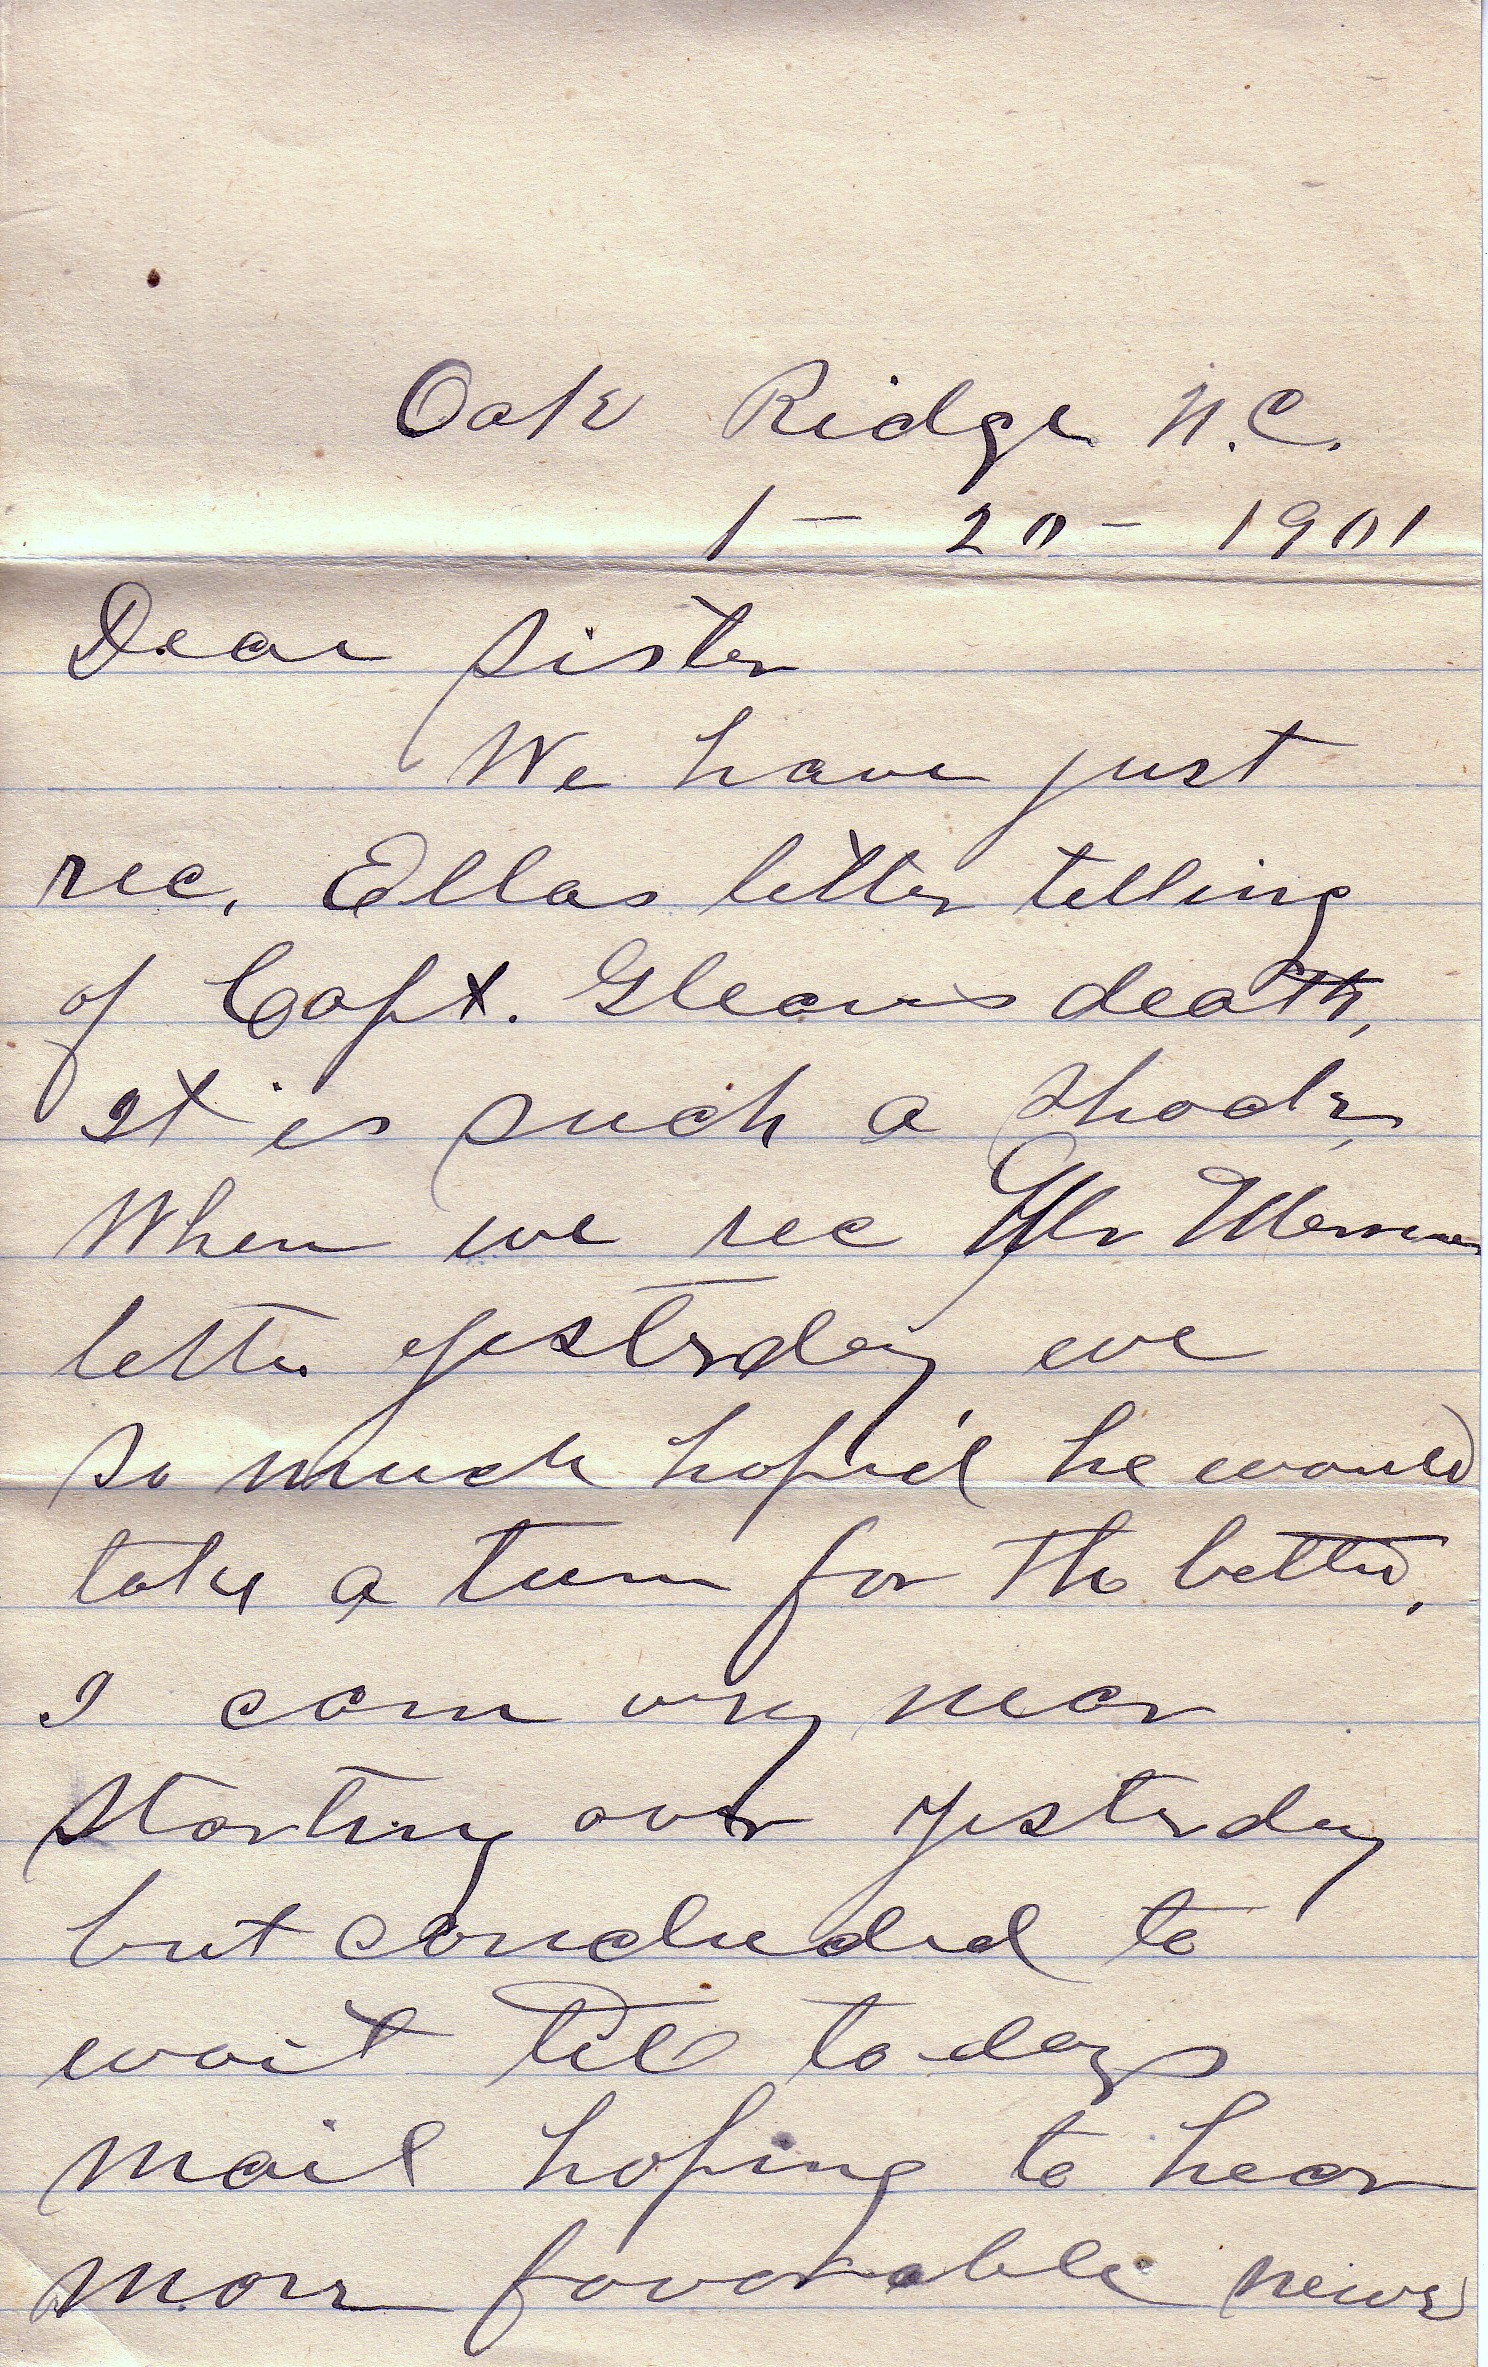 Oak Ridge N.C.
1 - 20 - 1901
Dear Sister
We have just
rec. Ellas letter telling
of Capt. Gleaves death,
It is such a shock,
When we rec Mr
letter yesterday we
so much hop'd he would
take a turn for the better.
I came very near
starting over yesterday
but concluded to
wait till to days
mail hoping to hear
more favorable news